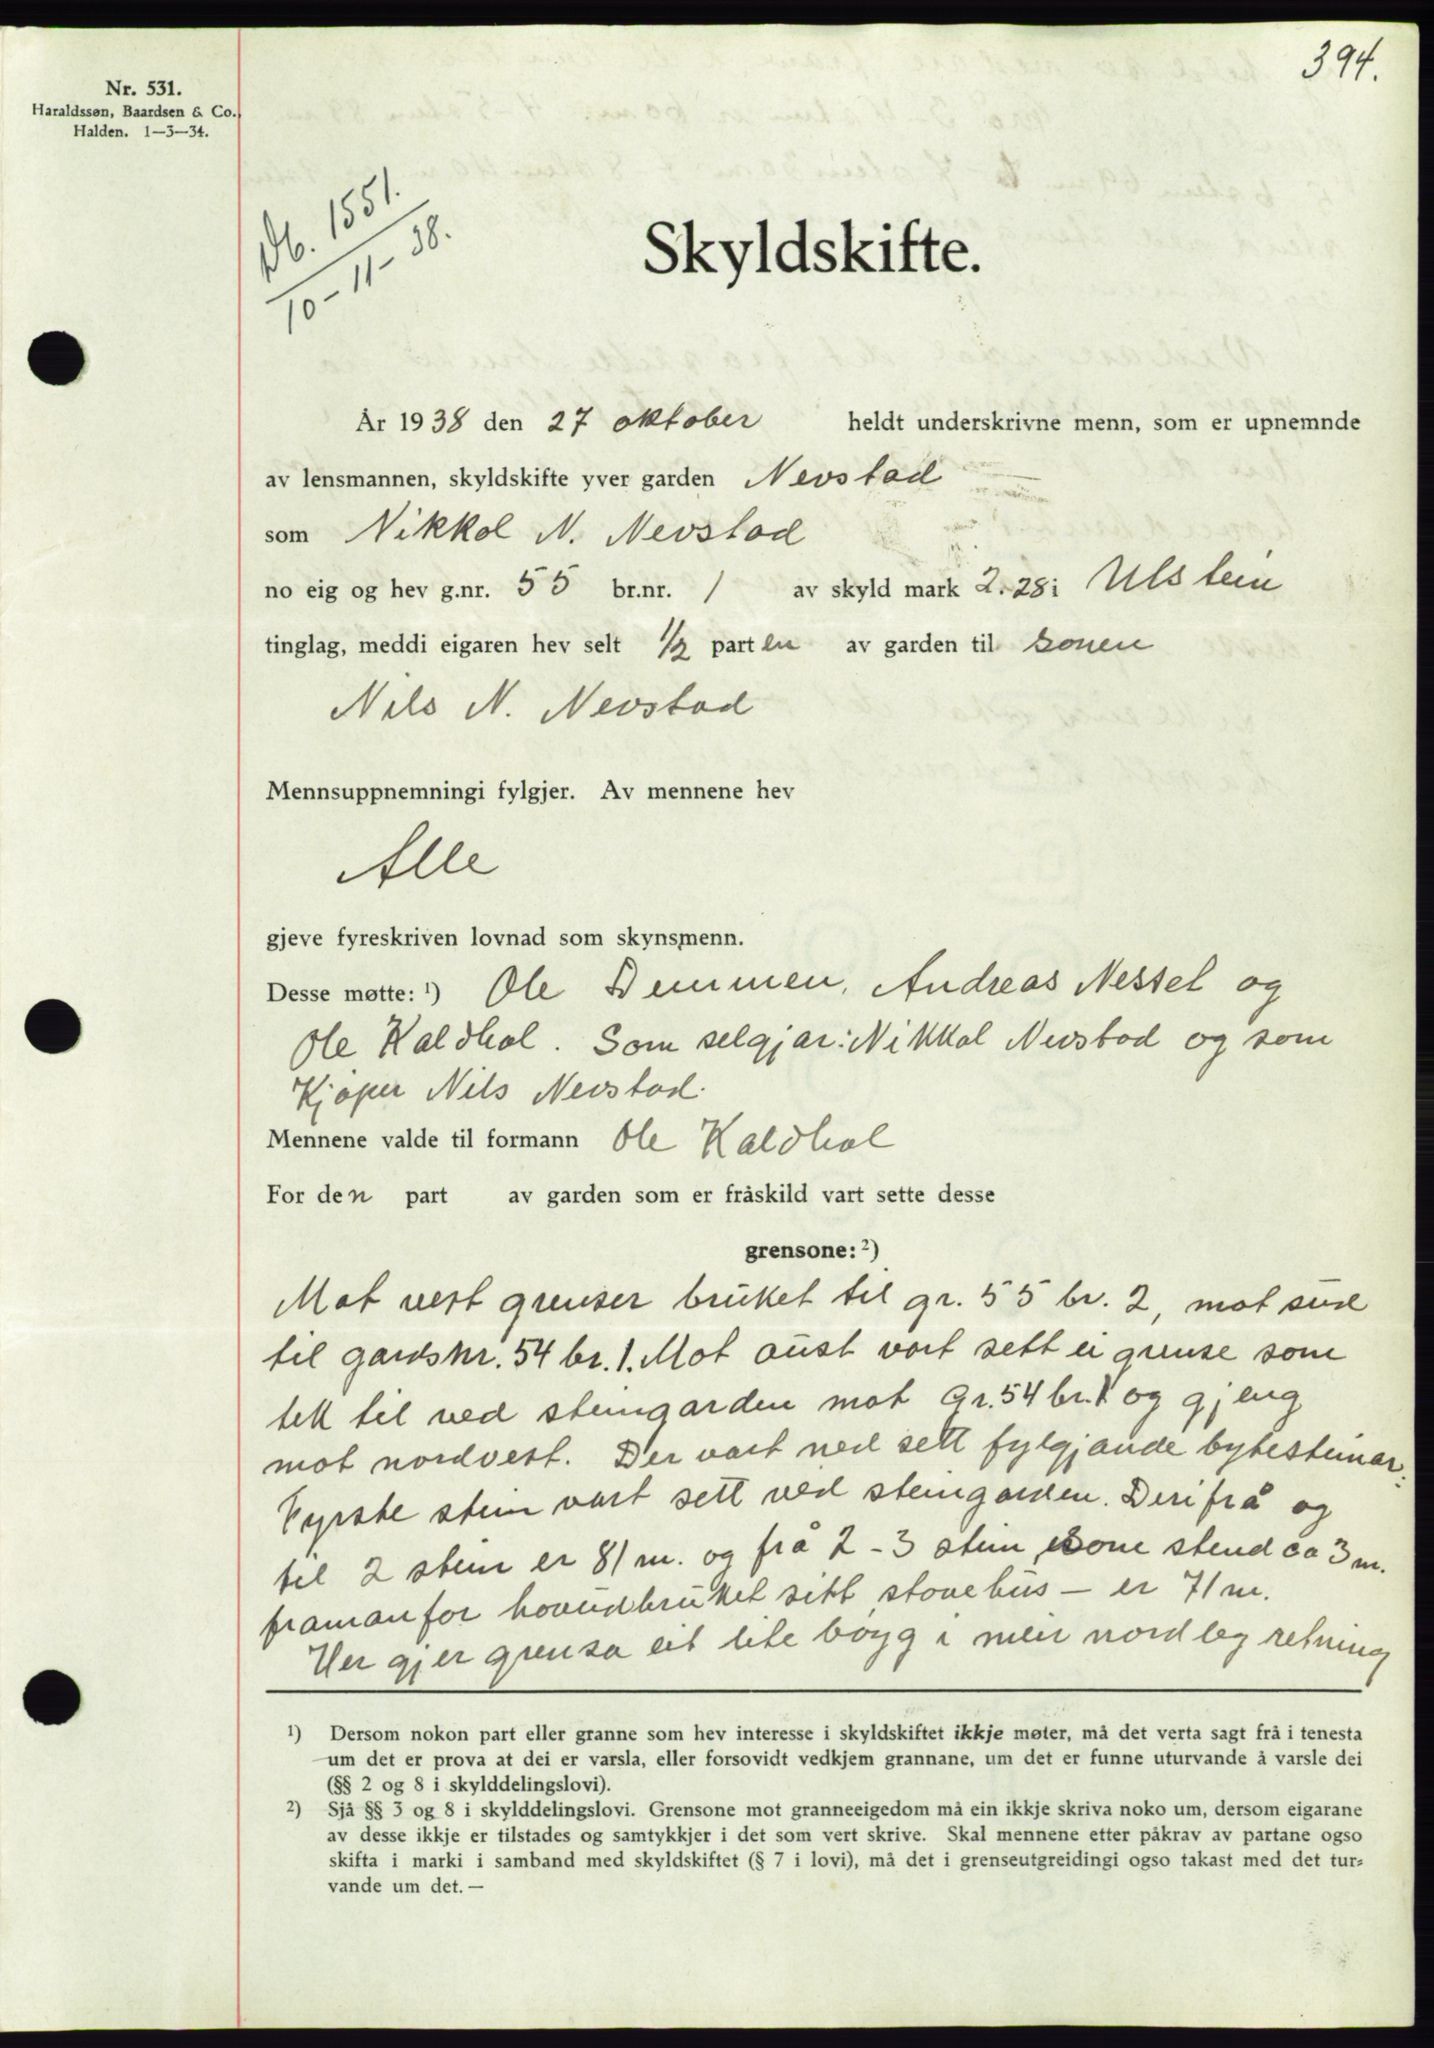 394.
Nr. 531.
Haraldssøn, Baardsen & Co.,
Halden. 1—3—34.
Db. 1551.
10-11-38.
Skyldskifte.
År 1938 den 27 oktober heldt underskrivne menn, som er upnemnde
av lensmannen, skyldskifte yver garden Nevstad
som Nikkol N. Nevstad
no eig og hev g.nr. 55 br.nr. 1 av skyld mark 2.28 i Ulstein
tinglag, meddi eigaren hev selt 1/2 parten av garden til sonen
Nils N. Nevstad
Mennsuppnemningi fylgjer. Av mennene hev
Alle
gjeve fyreskriven lovnad som skynsmenn.
Desse møtte: ¹) Ole Dimmen, Andreas Nesset og
Ole Kaldhol. Som selgjar: Nikkol Nevstad og som
Kjøper Nils Nevstad.
Mennene valde til formann Ole Kaldhol
For den part av garden som er fråskild vart sette desse
grensone: ²)
Mot vest grenser bruket til gr. 55 br. 2, mot sud
til gardsnr. 54 br. 1. Mot aust vart sett ei grense som
tek til ved steingarden mot gr. 54 br. 1 og gjeng
mot nordvest. Der vart ned sett fylgjande bytesteinar:
Fyrste stein vart sett ved steingarden. Derifrå og
til 2 stein er 81 m. og frå 2 - 3 stein som stend ca 3 m.
framanfor hovudbruket sitt stovehus — er 71 m.
Her gjer grensa eit lite bøyg i meir nordleg retning
¹) Dersom nokon part eller granne som hev interesse i skyldskiftet ikkje møter, må det verta sagt frå i tenesta
um det er prova at dei er varsla, eller forsovidt vedkjem grannane, um det er funne uturvande å varsle dei
(§§ 2 og 8 i skylddelingslovi).
²) Sjå §§ 3 og 8 i skylddelingslovi. Grensone mot granneeigedom må ein ikkje skriva noko um, dersom eigarane
av desse ikkje er tilstades og samtykkjer i det som vert skrive. Skal mennene etter påkrav av partane ogso
skifta i marki i samband med skyldskiftet (§ 7 i lovi), må det i grenseutgreidingi ogso takast med det tur-
vande um det. —